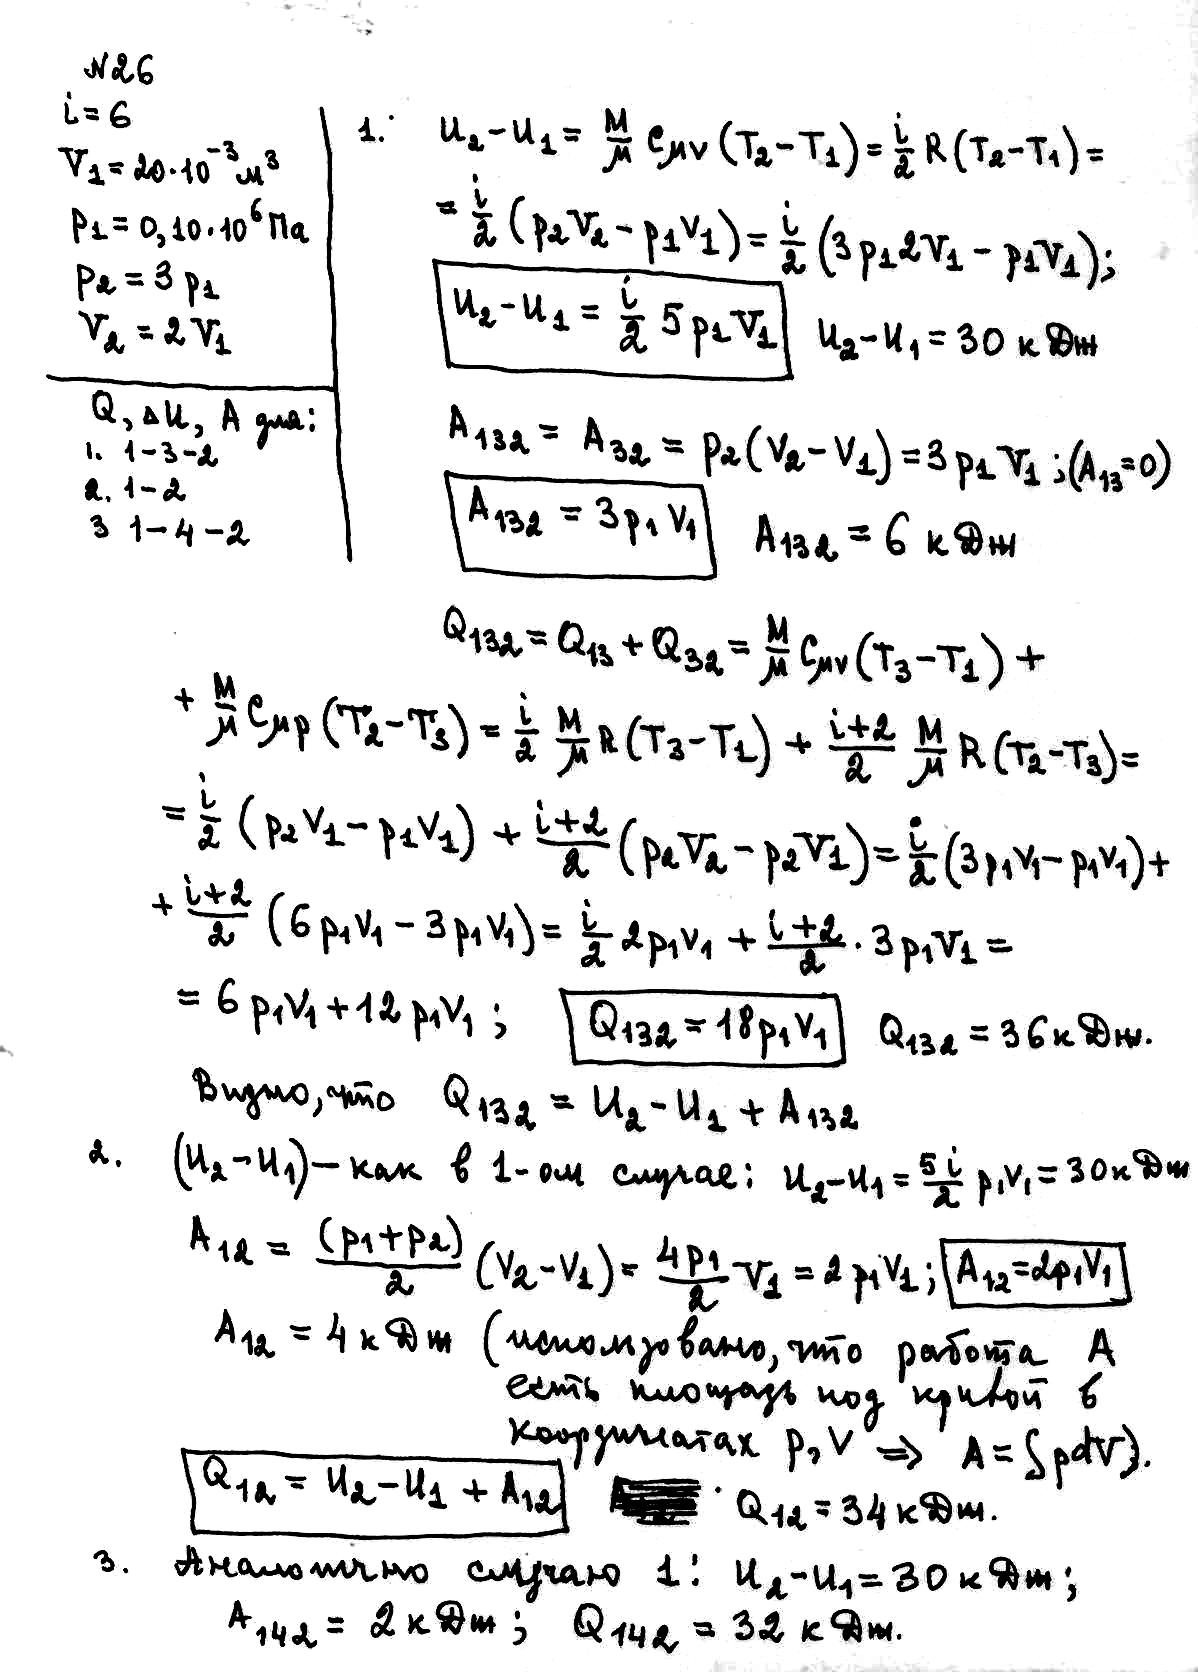 №26
i = 6
V₁ = 20·10⁻³ м³
p₁ = 0,10·10⁶ Па
p₂ = 3 p₁
V₂ = 2 V₁
Q, ΔU, A для:
1. 1-3-2
2. 1-2
3 1-4-2
1. U₂-U₁ = M/μ C_μV (T₂-T₁) = i/2 R (T₂-T₁) =
= i/2 (p₂V₂ - p₁V₁) = i/2 (3p₁2V₁ - p₁V₁);
U₂-U₁ = i/2 5p₁V₁ U₂-U₁ = 30 кДж
A₁₃₂ = A₃₂ = p₂(V₂-V₁) = 3p₁V₁; (A₁₃=0)
A₁₃₂ = 3p₁V₁ A₁₃₂ = 6 кДж
Q₁₃₂ = Q₁₃ + Q₃₂ = M/μ C_μV (T₃-T₁) +
+ M/μ C_μp (T₂-T₃) = i/2 M/μ R(T₃-T₁) + i+2/2 M/μ R (T₂-T₃) =
= i/2 (p₂V₁ - p₁V₁) + i+2/2 (p₂V₂ - p₂V₁) = i/2 (3p₁V₁ - p₁V₁) +
+ i+2/2 (6p₁V₁ - 3p₁V₁) = i/2 2p₁V₁ + i+2/2 · 3p₁V₁ =
= 6 p₁V₁ + 12 p₁V₁; Q₁₃₂ = 18p₁V₁ Q₁₃₂ = 36 кДж.
Видно, что Q₁₃₂ = U₂-U₁ + A₁₃₂
2. (U₂-U₁) – как в 1-ом случае: U₂-U₁ = 5i/2 p₁V₁ = 30 кДж
A₁₂ = (p₁+p₂)/2 (V₂-V₁) = 4p₁/2 V₁ = 2 p₁V₁; A₁₂ = 2p₁V₁
A₁₂ = 4 кДж (использовано, что работа A
есть площадь под кривой в
координатах p, V ⇒ A = ∫pdV).
Q₁₂ = U₂-U₁ + A₁₂ Q₁₂ = 34 кДж.
3. Аналогично случаю 1: U₂-U₁ = 30 кДж;
A₁₄₂ = 2 кДж; Q₁₄₂ = 32 кДж.